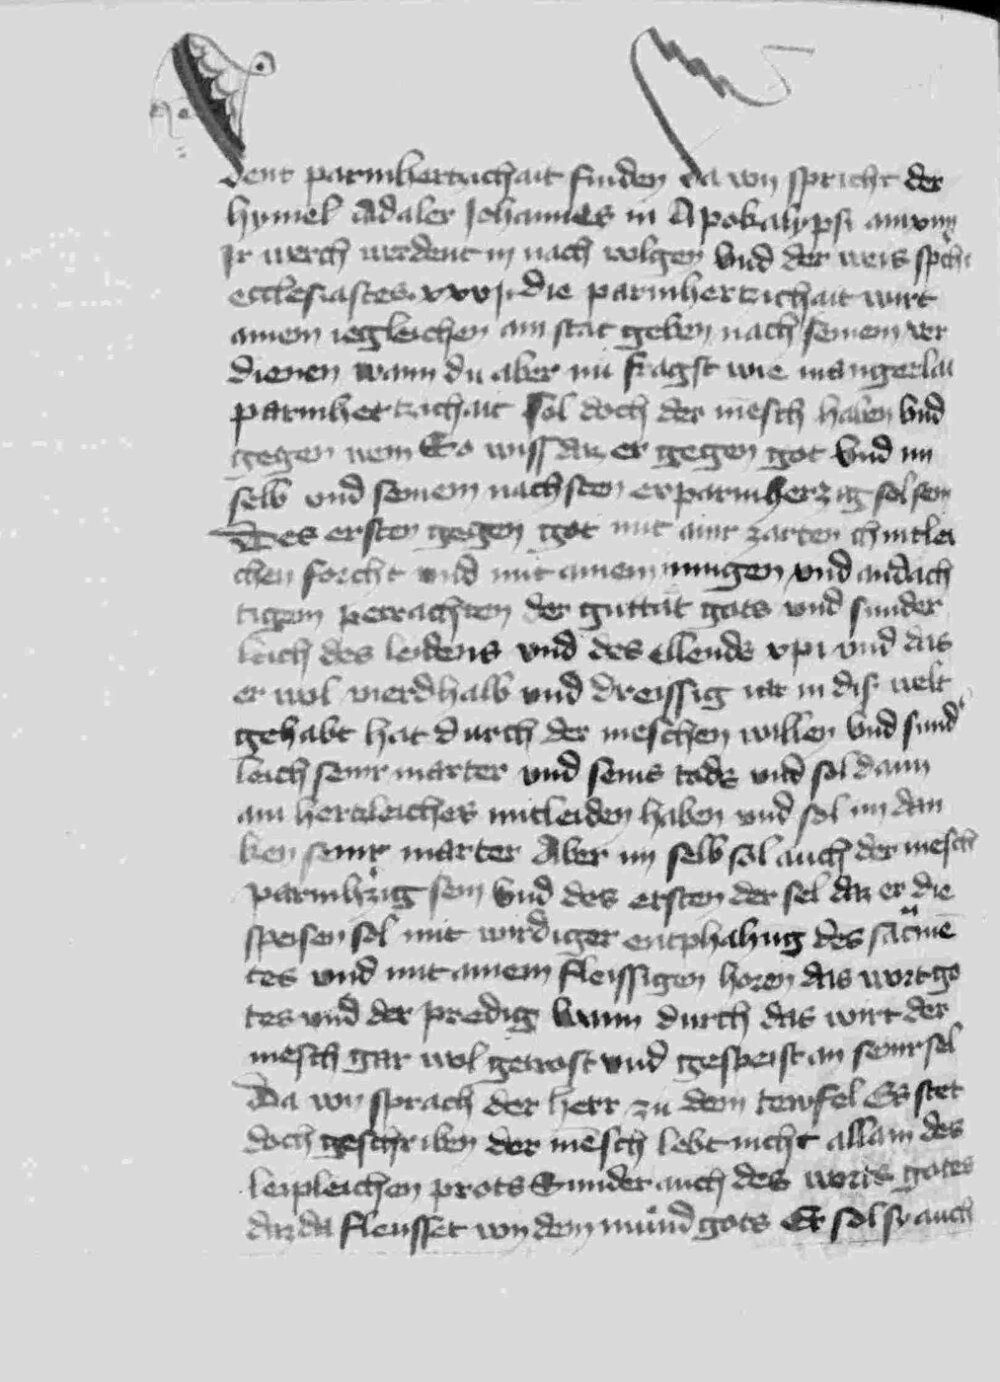 dent parmhertzichait finden da von spricht der
hymel Adaler Johannes in Apokalypsi am xiiij
Ir werch werdent in nach volgen Vnd der weis spricht
ecclesiastes xvj. die parmhertzichait wirt
ainem iegleichen ain stat geben nach seinem ver
dienen wann du aber nu fragst wie mangerlai
parmhertzichait sol doch der mesch haben Vnd
gegen wem So wiss daz er gegen got Vnd im
selb vnd seinem nachsten erparmherzig sol sein
Des ersten gegen got mit ainr zarten chintlei
chen forcht vnd mit ainem innigen vnd andach
tigem petrachten der guttat gots vnd sunder
leich des leidens vnd des ellends xpi vnd das
er wol vierdhalb vnd dreissig iar in dis welt
gehabt hat durch der meschen willen Vnd sund
leich seinr marter vnd seins tods vnd sol dann
ain hertzleiches mitleiden haben vnd sol im dan
ken seinr marter Aber im selb sol auch der mesch
parmhrzig sein Vnd des ersten der sel daz er die
speisen sol mit wirdiger entphahug des sacrme
tes vnd mit ainem fleissigen horen das wort go
tes vnd der predig Wann durch das wirt der
mesch gar wol getrost vnd gespeist an seinr sel
Da von sprach der herr zu dem tewfel Es stet
doch geschriben der mesch lebt nicht allain des
leipleichen prots Sunder auch des worts gotes
daz da fleusset von dem mund gots Er sol sy auch